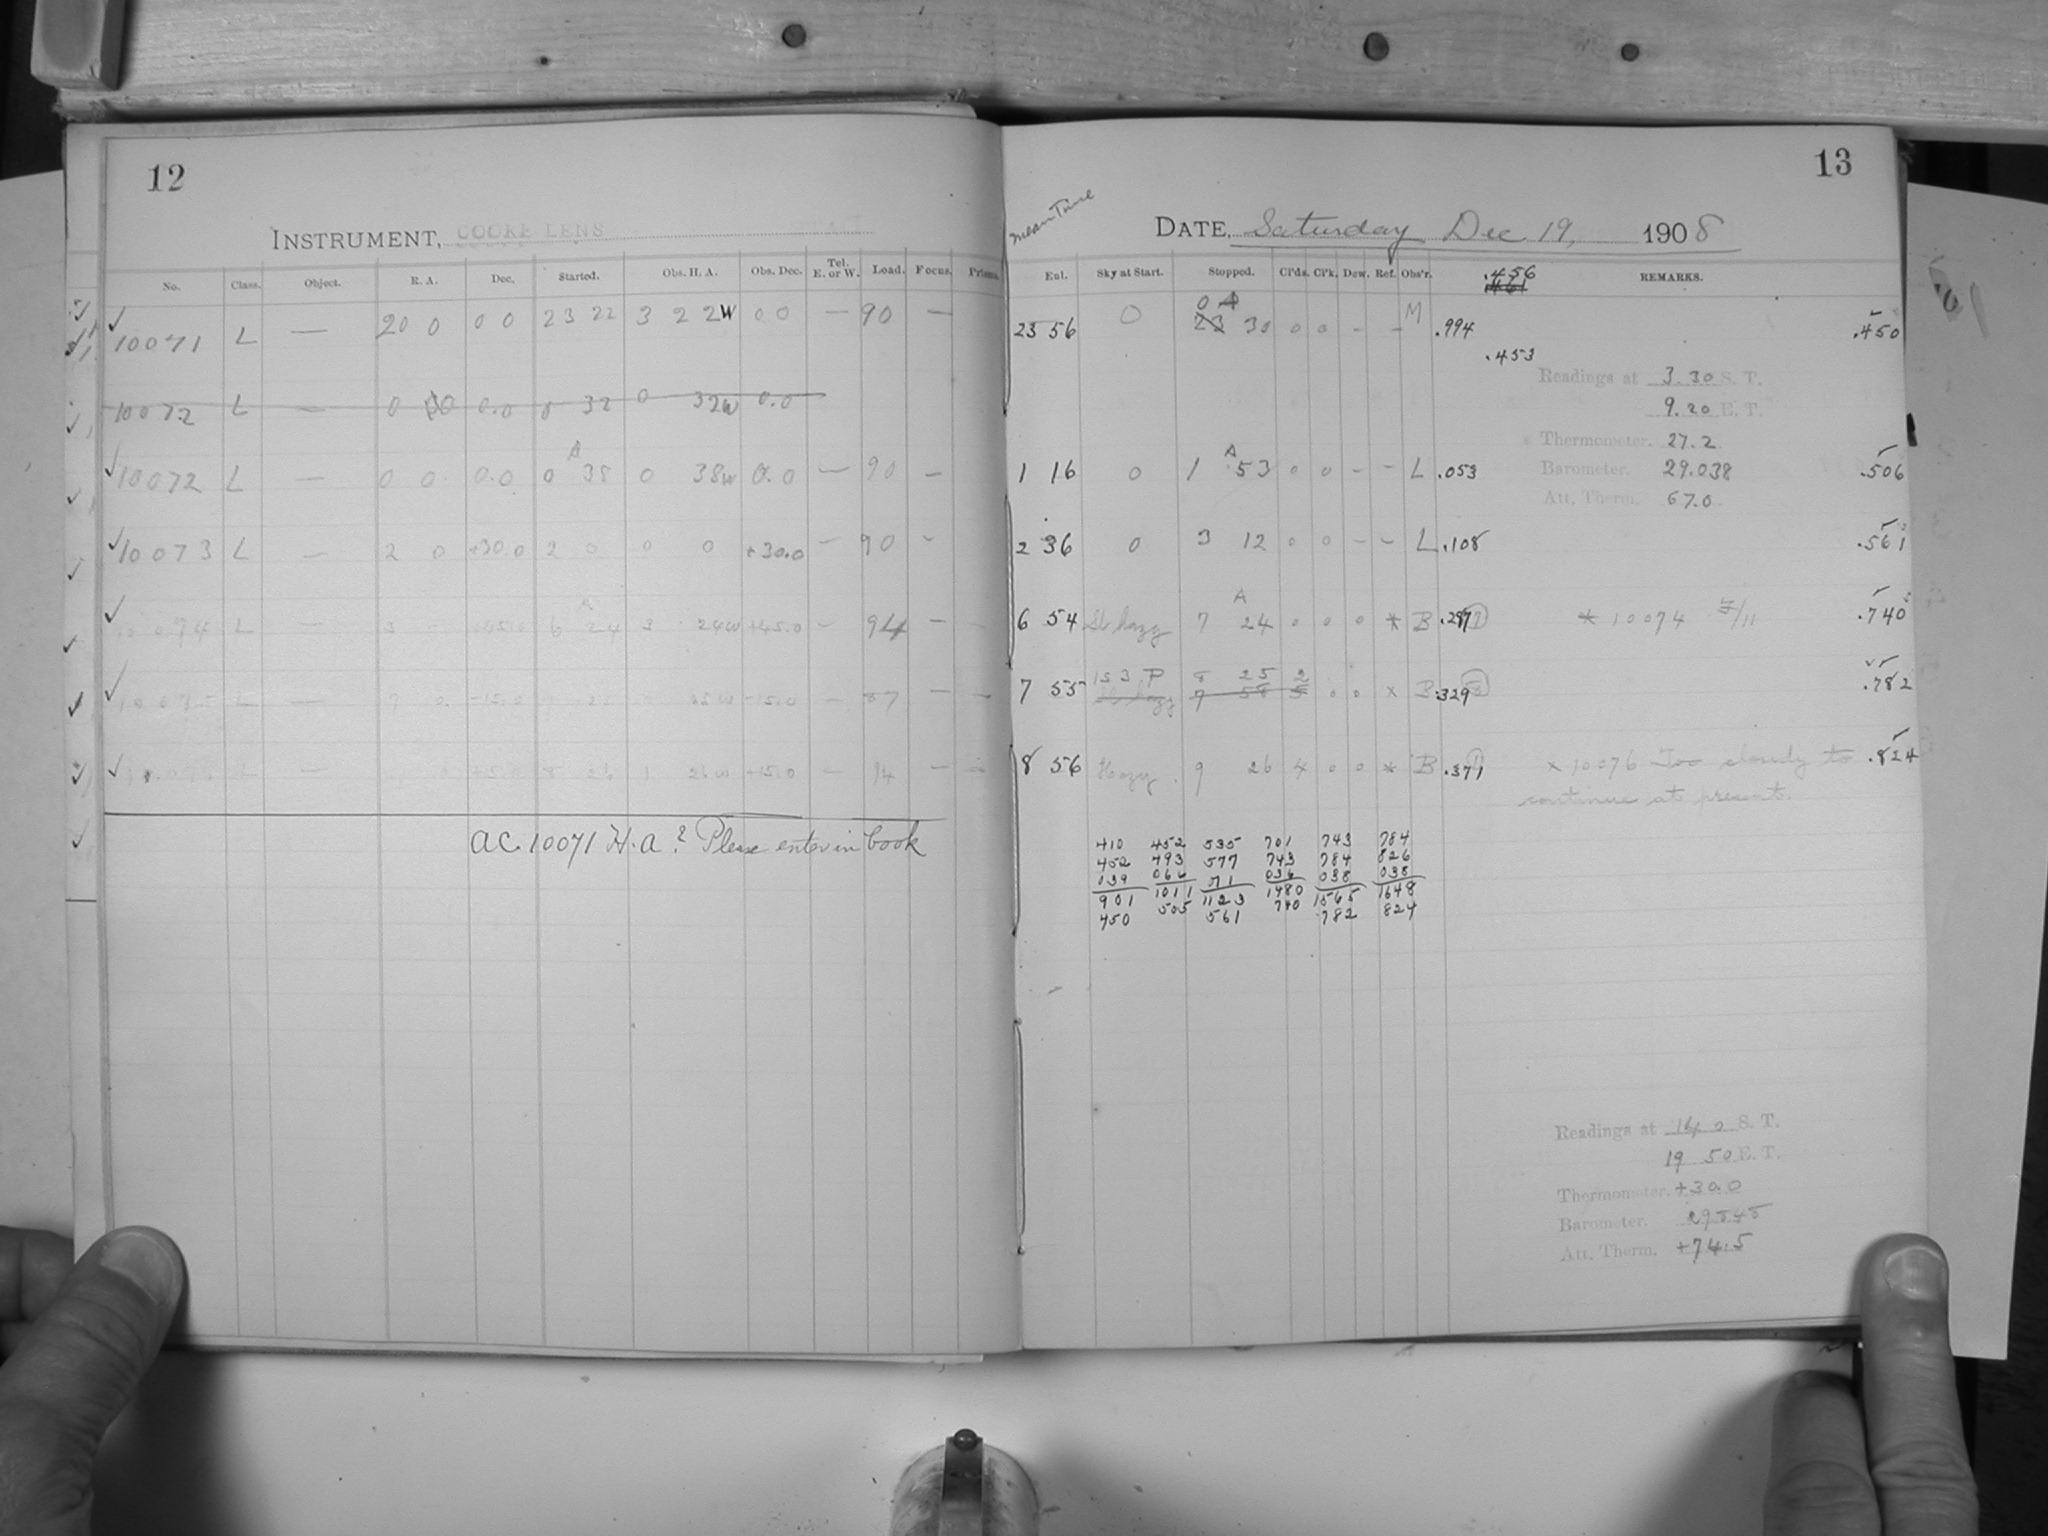 12
INSTRUMENT, COOKE LENS
No. Class. Object. R. A. Dec. Started. Obs. H. A. Obs. Dec. Tel. E. or W. Load. Focus. Prisms.
✓ 10071 L — 20 0 0 0 23 22 3 22W 0 0 — 90 —
10072 L — 0 30 0.0 0 32 0 32W 0.0
✓ 10072 L — 0 0 0.0 0 38 0 38W 0.0 — 90 —
✓ 10073 L — 2 0 +30.0 2 0 0 0 +30.0 — 90 -
✓ 10074 L — 3 +45.0 6 24 3 24W +45.0 — 94 — -
✓ 10075 L — -15.0 -15.0 — 87 — —
✓ L — +15.0 8 26 1 26W +15.0 — 94 —
AC. 10071 H.A? Please enter in book
13
Mean Time
DATE, Saturday Dec 19, 1908
Eul. Sky at Start. Stopped. Cl'ds. Cl'k. Dew. Ref. Obs'r. .456 REMARKS.
23 56 0 0 A 23 30 0 0 - - M .994 .450
.453
Readings at 3.30 S. T.
9.20 E. T.
Thermometer. 27.2
1 16 0 1 A 53 0 0 - - L .053 Barometer. 29.038 .506
Att. Therm. 67.0
2 36 0 3 12 0 0 - - L .108 .561
6 54 Sl. hazy 7 A 24 0 0 0 * B .287 * 10074 .740
7 55 8 25 2
7 58 5 0 0 x B .329 .782
8 56 Hazy 9 26 4 0 0 * B .371 x 10076 Too cloudy to .824
continue at present.
410 452 535 701 743 784
452 493 577 743 784 826
039 066 11 036 038 038
901 1011 1123 1480 1565 1648
450 505 561 740 782 824
Readings at 14 0 S. T.
19 50 E. T.
Thermometer. +30.0
Barometer. 29.545
Att. Therm. +74.5